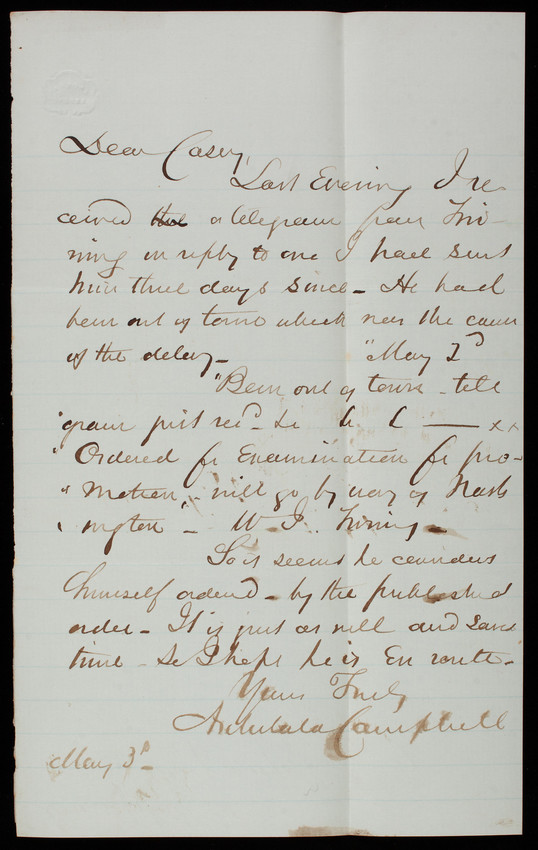 Dear Casey,
Last Evening I re-
ceived the a telegram from Twi-
ning in reply to one I had sent
him three days since - He had
been out of town which was the cause
of the delay - "May 2d
"Been out of town - tele
"gram just recd. &c &c &c — xx
"Ordered for Examination for pro-
"motion, - will go by way of Wash
"ington" - W. J. Twining -
So it seems he considers
himself ordered - by the published
order - It is just as well and saves
time - So I hope he is En route -
Yours Truly
Archibald Campbell
May 3d -